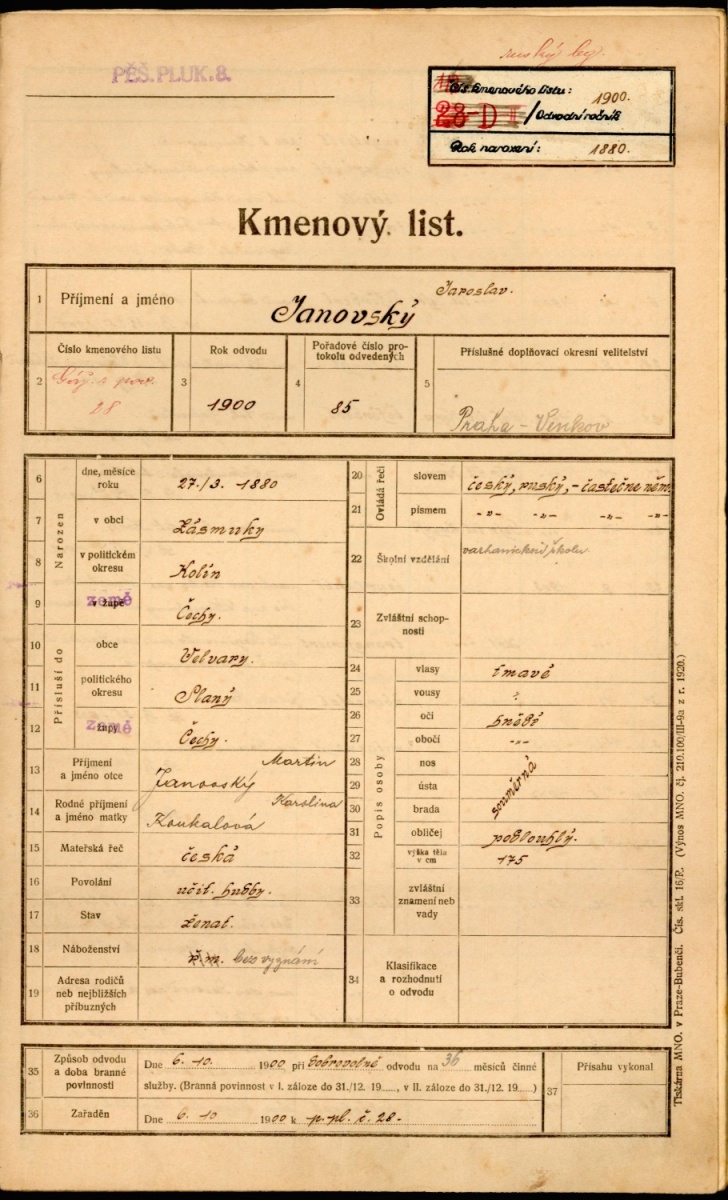 ruský leg.
PĚŠ. PLUK. 8.
Čís. kmenového listu:
28-D II / Odvodní ročník 1900.
Rok narození: 1880.
Kmenový list.
1 Příjmení a jméno Janovský Jaroslav.
Číslo kmenového listu
Rok odvodu
Pořadové číslo pro-
tokolu odvedených
Příslušné doplňovací okresní velitelství
2 28
3 1900
4 85
5 Praha - Venkov
Narozen
6 dne, měsíce
roku 27./3. 1880
7 v obci Zásmuky
8 v politickém
okresu Kolín
9 v župě země Čechy.
Přísluší do
10 obce Velvary.
11 politického
okresu Slaný
12 župy země Čechy.
13 Příjmení
a jméno otce Janovský Martin
14 Rodné příjmení
a jméno matky Koukalová Karolina
15 Mateřská řeč česká
16 Povolání učit. hudby.
17 Stav ženat.
18 Náboženství ř. m. bez vyznání
19 Adresa rodičů
neb nejbližších
příbuzných
Ovládá řeči
20 slovem český, ruský, - částečne něm
21 písmem -"- -"- -"- -"-
22 Školní vzdělání varhanickou školu
23 Zvláštní schop-
nosti
Popis osoby
24 vlasy tmavé
25 vousy
26 oči hnědé
27 obočí -"-
28 nos
29 ústa souměrná
30 brada
31 obličej podlouhlý.
32 výška těla
v cm 175
33 zvláštní
znamení neb
vady
34 Klasifikace
a rozhodnutí
o odvodu
35 Způsob odvodu
a doba branné
povinnosti
Dne 6. 10. 1900 při dobrovolné odvodu na 36 měsíců činné
služby. (Branná povinnost v I. záloze do 31./12. 19......, v II. záloze do 31./12. 19......)
36 Zařaděn Dne 6. 10 1900 k p. pl. č. 28.
37 Přísahu vykonal
Tiskárna MNO. v Praze-Bubenči. Čís. skl. 16/P. (Výnos MNO. čj. 210.100/III-9a z r. 1920.)